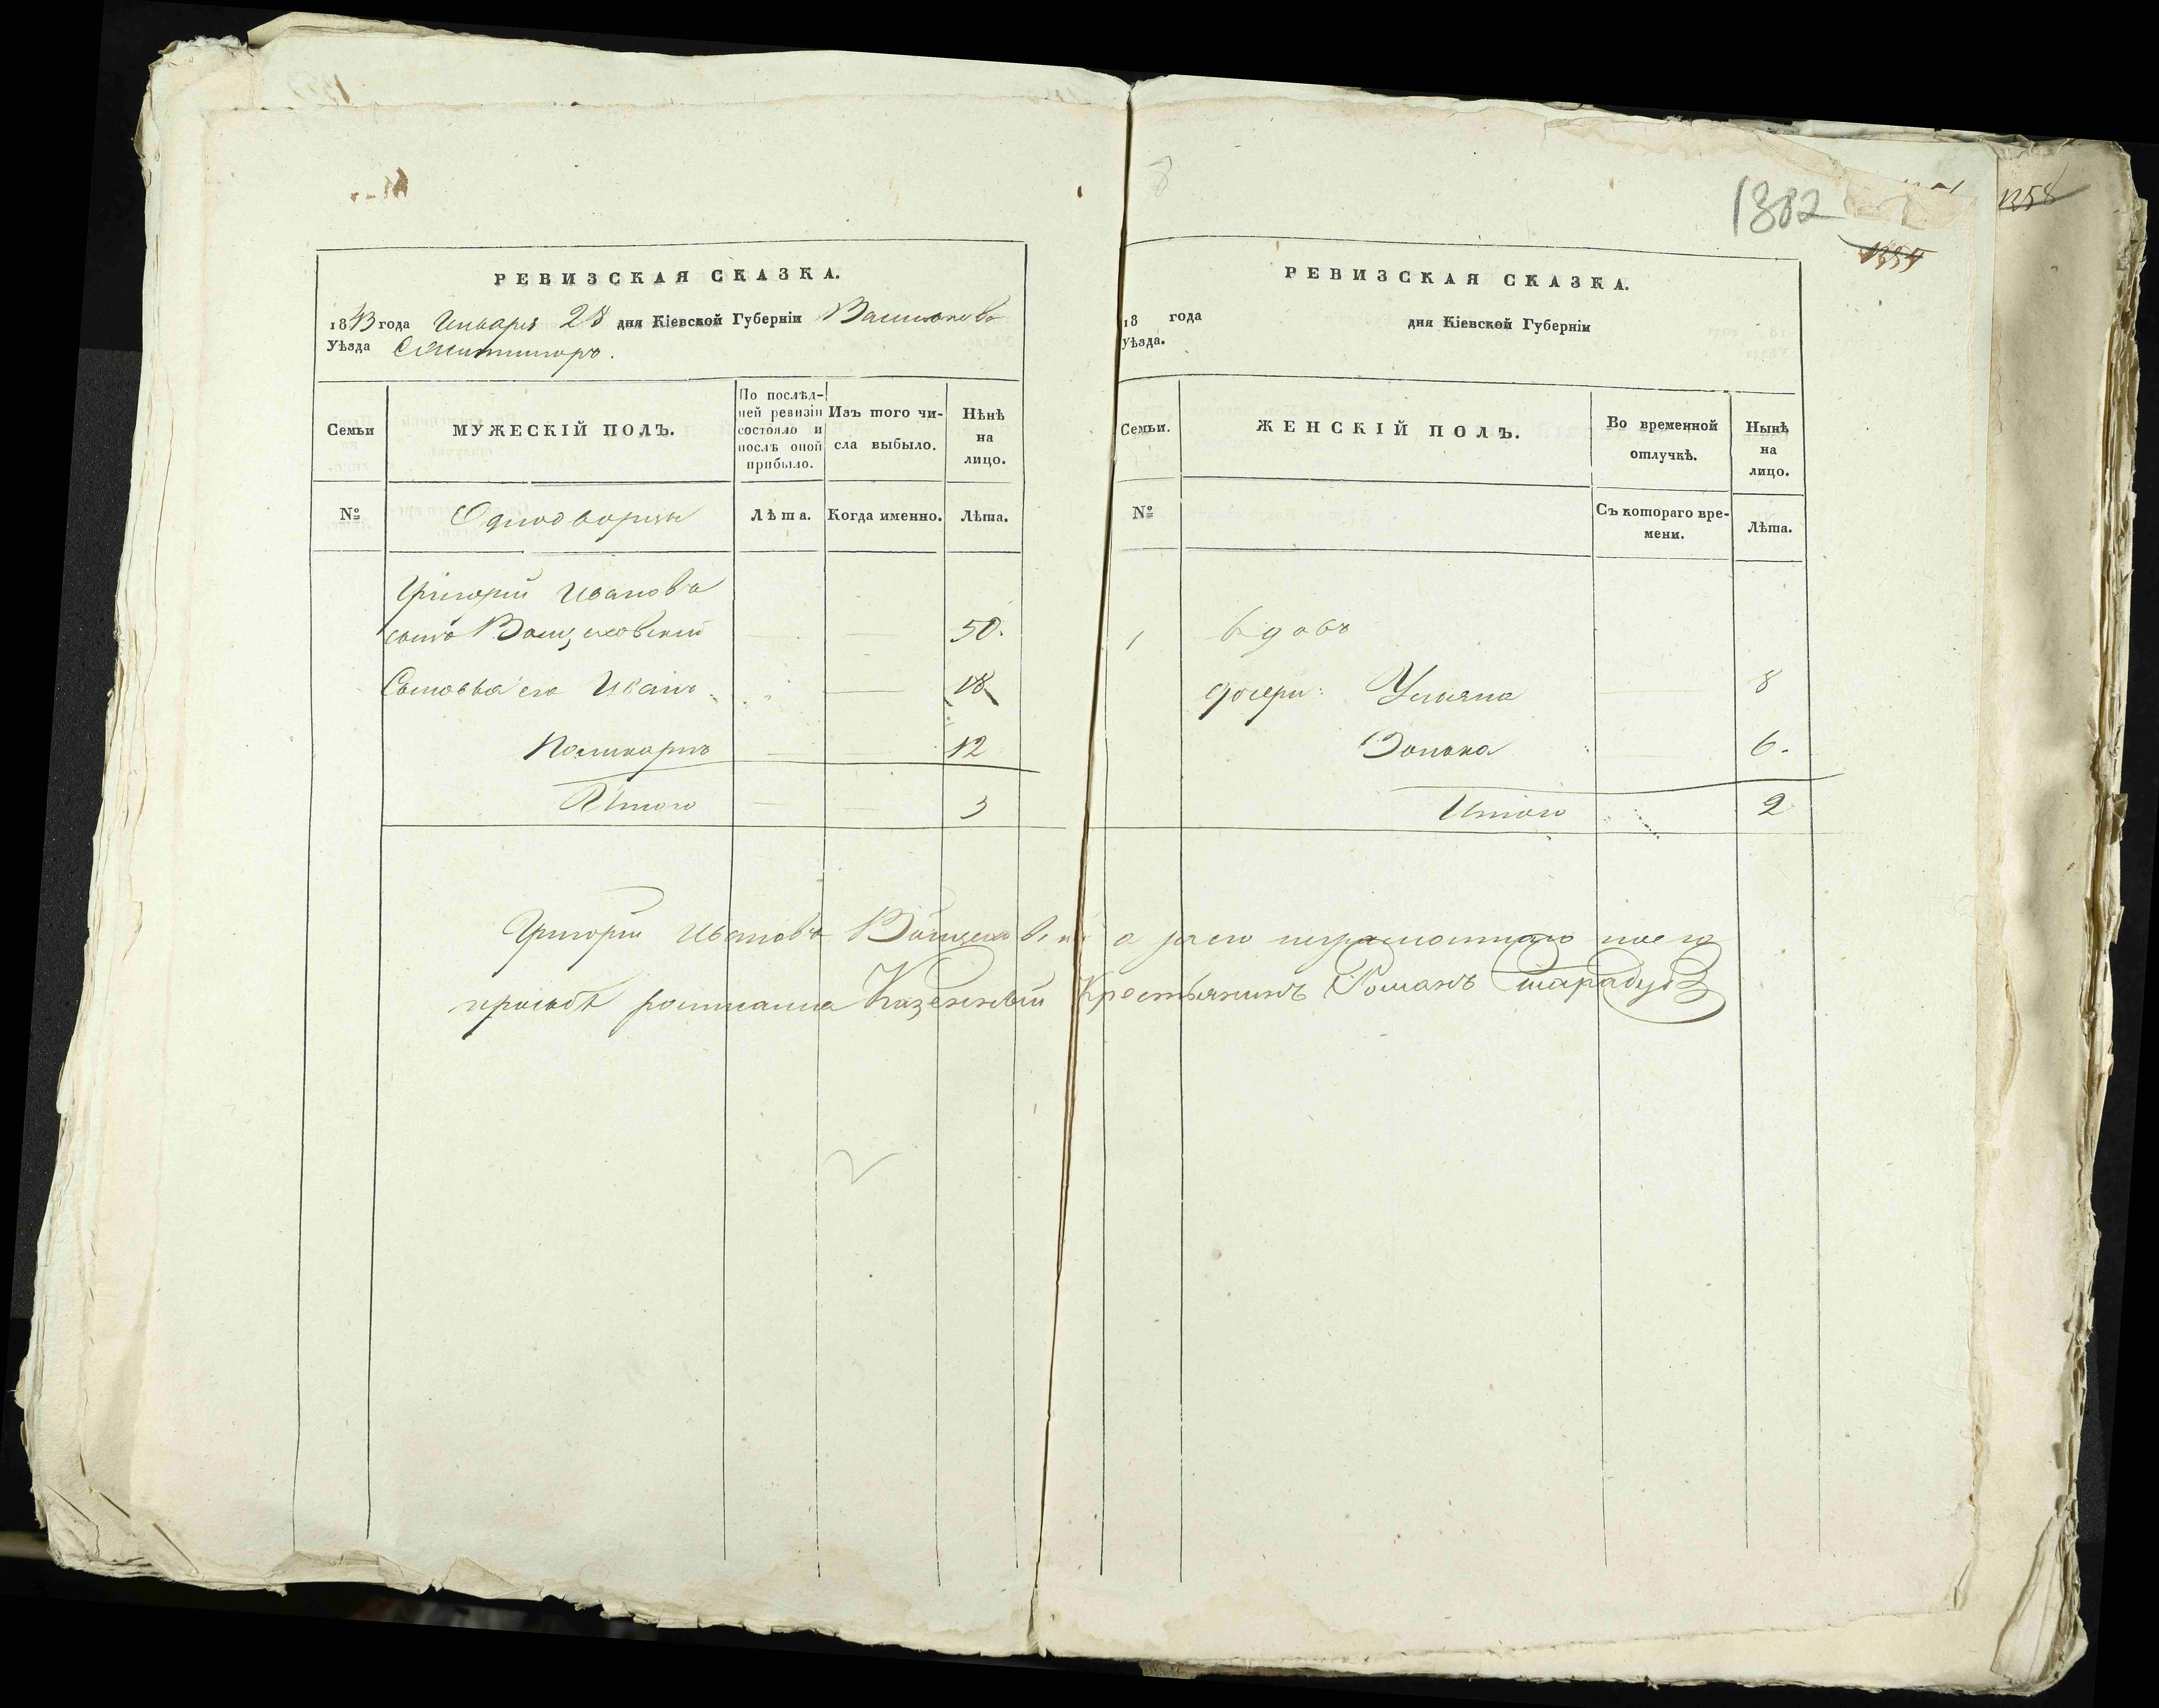 1382
1358
РЕВИЗСКАЯ СКАЗКА.
1843 года Января 28 дня Кіевской Губерніи
Уѣзда
Семьи
МУЖЕСКІЙ ПОЛЪ.
По послѣд-
ней ревизіи
состояло и
послѣ оной
прибыло.
Изъ того чи-
сла выбыло.
Нѣнѣ
на
лицо.
№
Однодворцы
Лѣта.
Когда именно.
Лѣта.
Григорій Ивановъ
сынъ 50.
Сыновья его Иванъ 18
Поликарпъ 12
Итого 3
РЕВИЗСКАЯ СКАЗКА.
18 года дня Кіевской Губерніи
Уѣзда.
Семьи.
ЖЕНСКІЙ ПОЛЪ.
Во временной
отлучкѣ.
Нынѣ
на
лицо.
№
Съ котораго вре-
мени.
Лѣта.
1 вдовъ
дочери: Ульяна 8
6.
Итого 2
Григорій Ивановъ а за его неграмотнаго по его
прозьбѣ Казенный Крестьянинъ Романъ